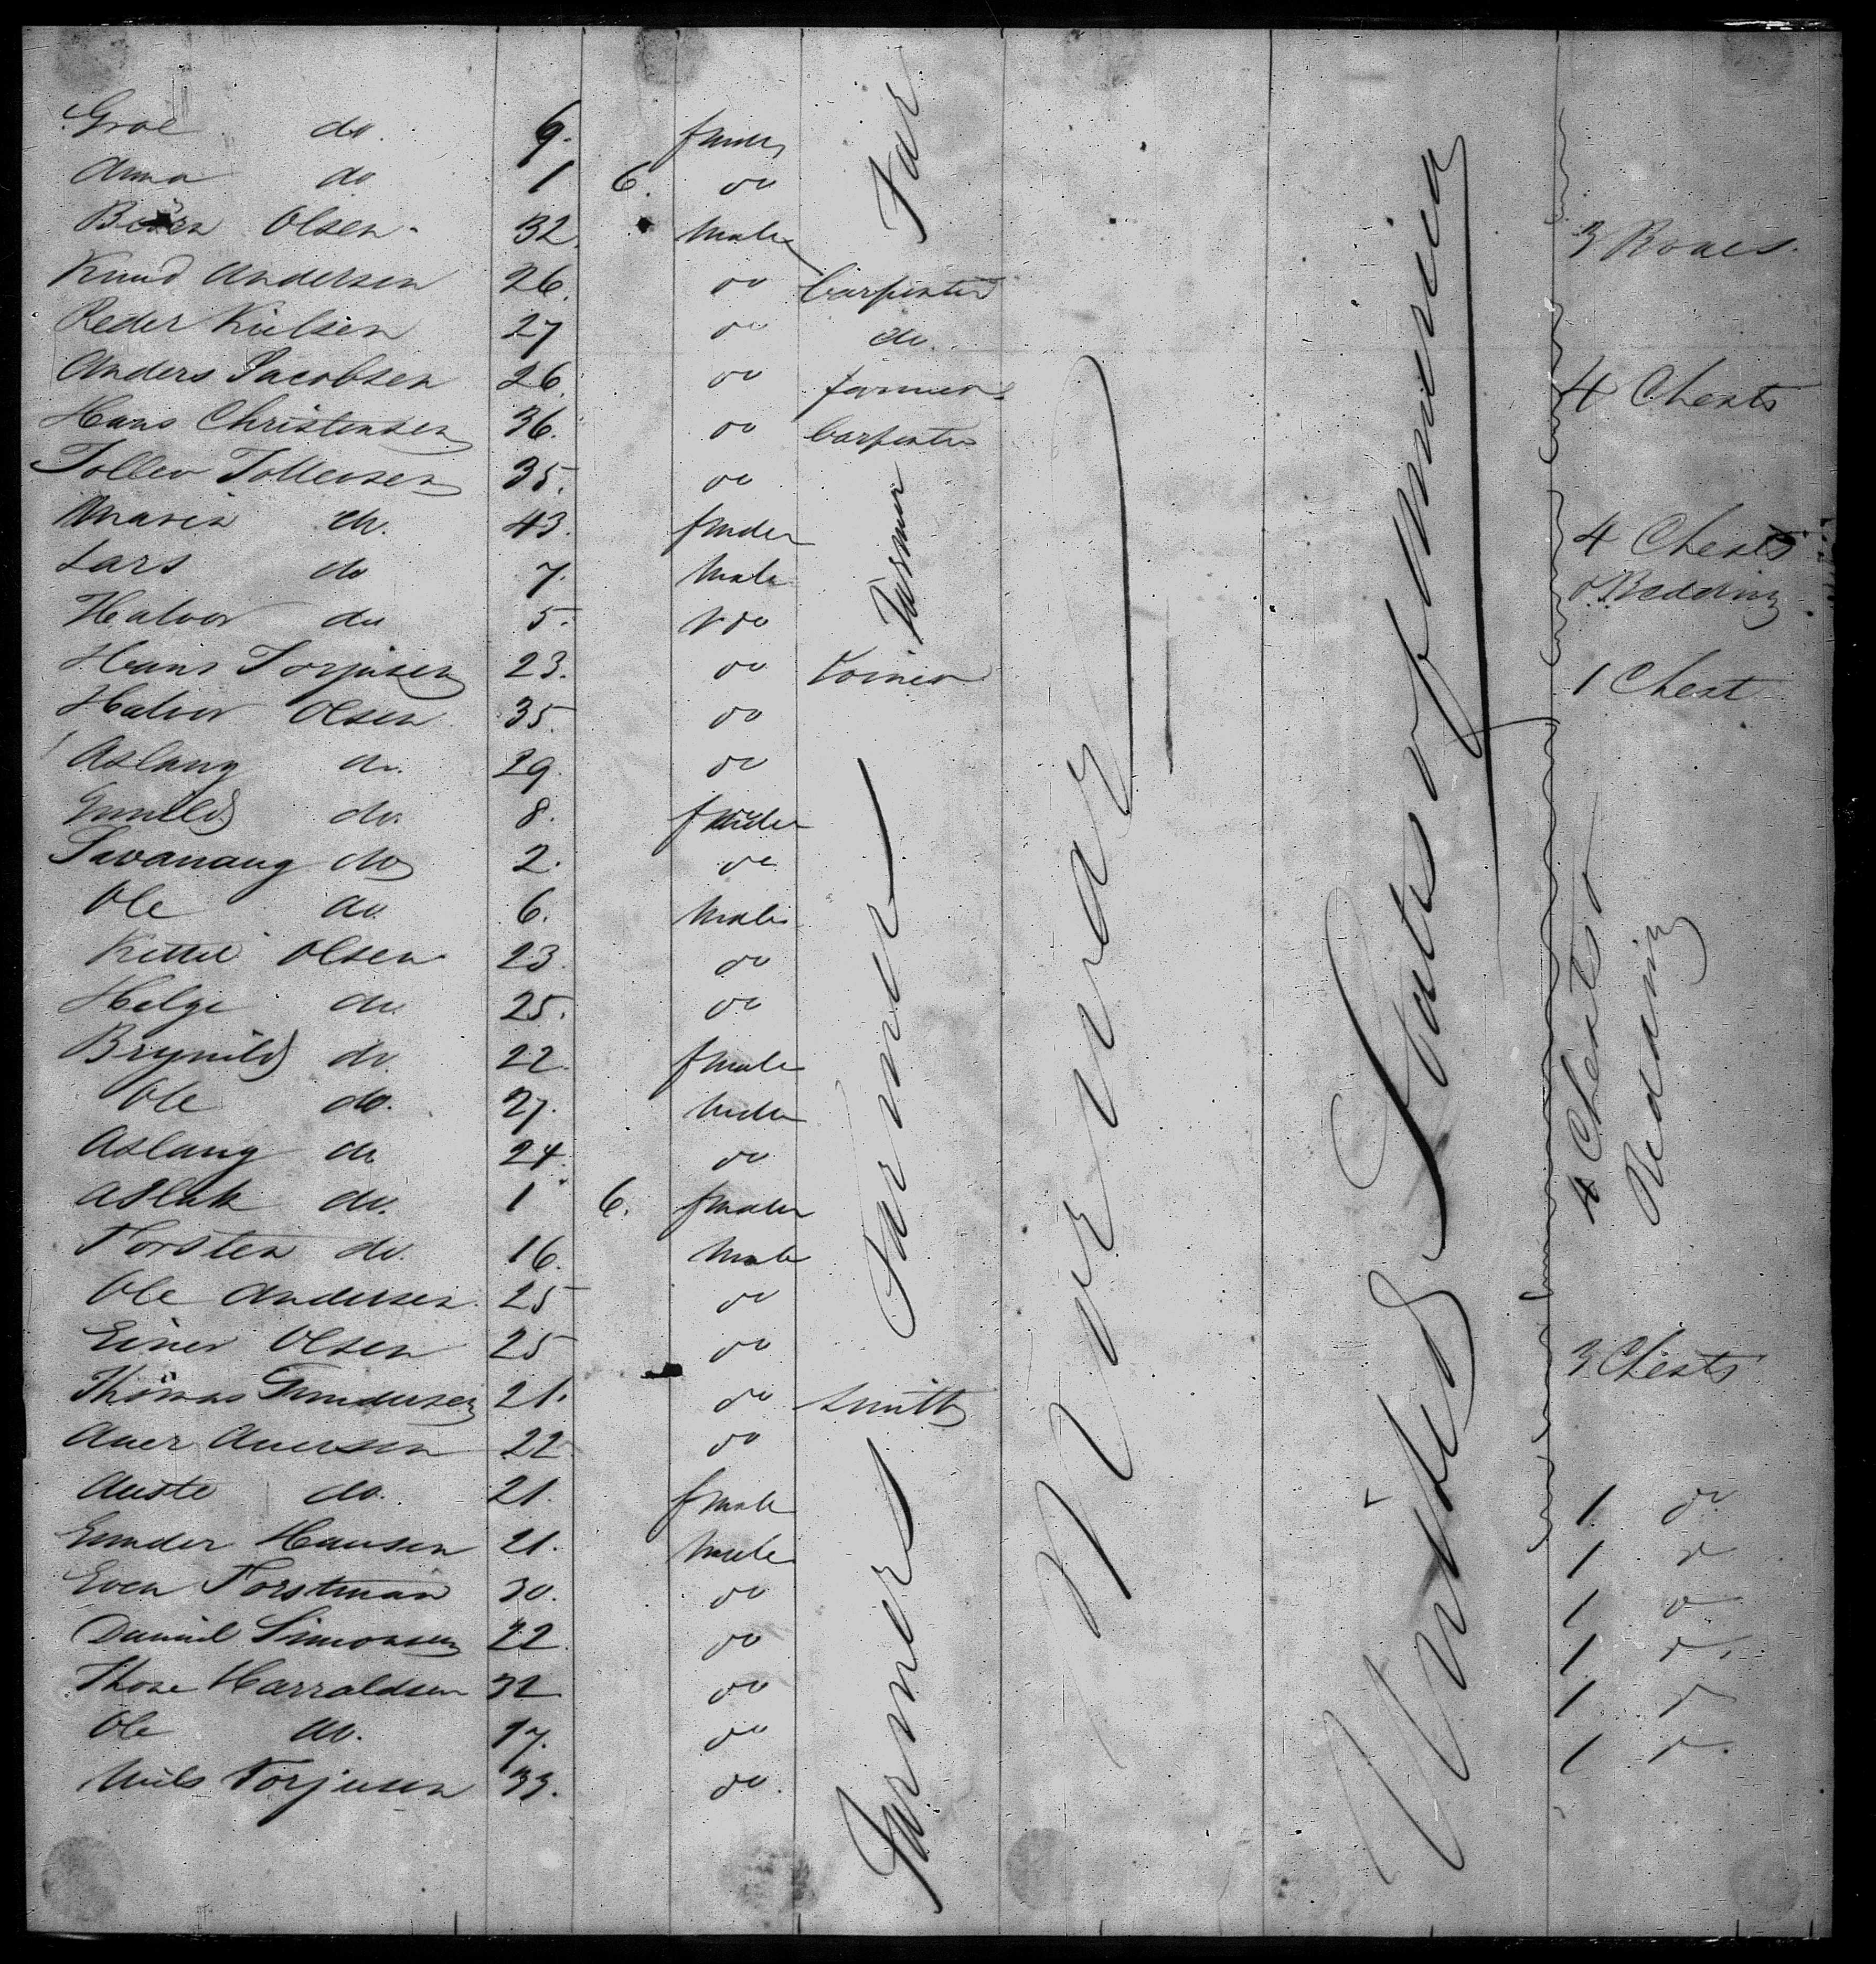 Groe do. 9. female
Anna do 1 6. do
Olsen 32. Male 3 Boxes.
Knud Andersen 26. do Carpenter
Peder Nielsen 27 do do.
Anders Jacobsen 26. do farmer 4 Chests
Hans Christensen 36. do Carpenter
Tollev Tollevsen 35. do
Maria do. 43. female 4 Chests
Lars do 7. Male & Bedding
Halvor do 5. do
Hans Torjusen 23. do Joiner 1 Chest
Halvor Olsen 35. do
Aslaug do. 29. do
Gunild do. 8. female
do 2. do
Ole do 6. Male
Kettil Olsen 23. do
Helge do. 25. do
Brynild do. 22. female
Ole do. 27. Male
Aslaug do 24. do
Aslak do. 1 6. female
Torsten do. 16. Male
Ole Andersen. 25 do
Einer Olsen 25 do 3 Chests
Thomas Gundersen 21. do Smith
22. do
do. 21. female 1 do
Gunder Hansen 21. Male 1 do
Even 30. do 1 do
Daniel Simonsen 22. do 1 do
Thore Harraldsen 32 do 1 do
Ole do. 17. do 1 do
Nils Torjusen 33. do
Far
Farmer
Farmer
Farmers
Norway
United States of America
4 Chests &
Bedding